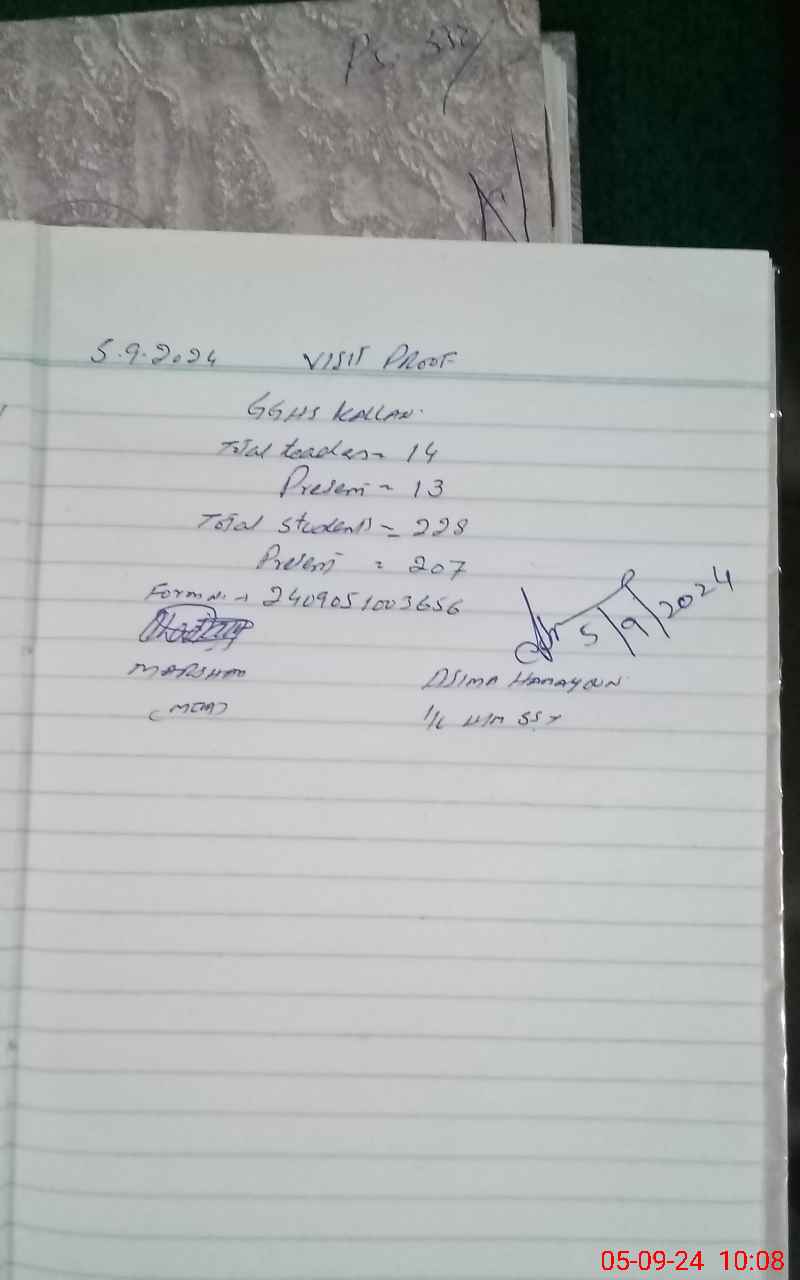 5.9.2024 VISIT PROOF
GGHS KALLAN.
Total teachers = 14
Present = 13
Total students = 228
Present = 207
Form No. → 2409051003656
5/9/2024
MARSHAD
ASIMA HAMAYOUN
(MEA)
I/C H/M SST
05-09-24 10:08